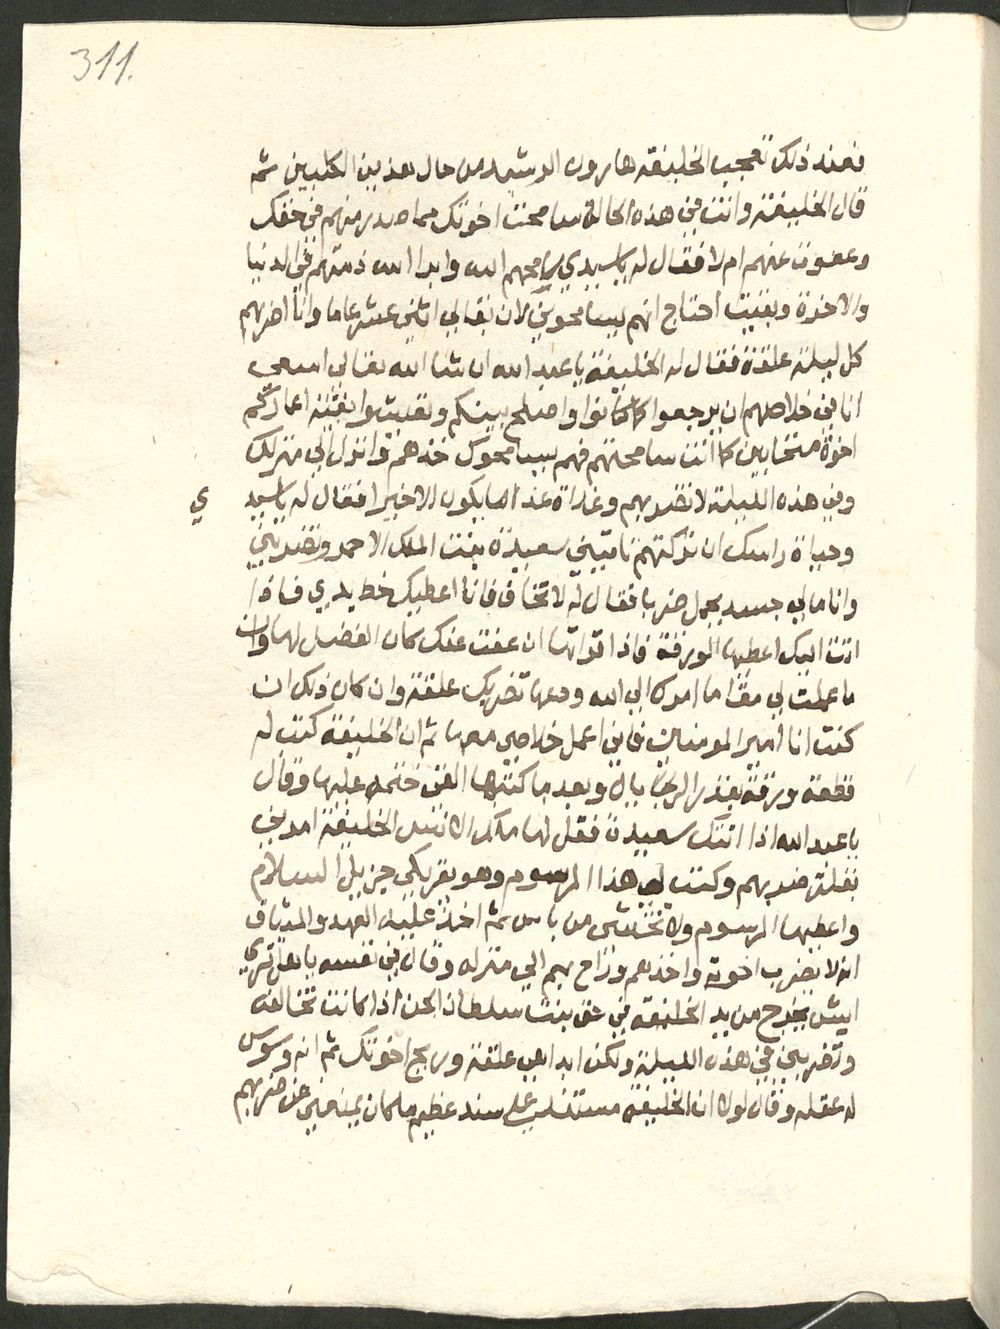 311.
فعند ذلك تعجب الخليفة هارون الرشيد من حال هذين الكلبين ثم
قال الخليفة وانت في هذه الحالة سامحت اخوتك مما صدر منهم في حقك
وعفوت عنهم ام لا فقال له ياسيدي سامحهم الله وابرا الله ذمتهم في الدنيا
والاخرة وبقيت احتاج انهم يسامحوني لان بقا لي اثني عشر عاما وانا اضربهم
كل ليلة علقة فقال له الخليفة يا عبد الله ان شا الله تعالى اسعى
انا في خلاصهم ان يرجعوا كما كانوا واصلح بينكم وتعيشوا بقية اعماركم
اخوة متحابين كما انت سامحتهم فهم يسامحوك خذهم وانزل الي منزلك
وفي هذه الليلة لا تضربهم وغداة غد ما يكون الا خير فقال له ياسيدي
وحياة راسك ان تركتهم تاتيني سعيدة بنت الملك الاحمر وتضربني
وانا مالي جسد يحمل ضربا فقال له لا تخاف فانا اعطيك خط يدي فاذا
اتت اليك اعطيها الورقة فاذا قراتها ان عفت عنك كان الفضل لها وان
ما عملت لي مقام امرك الي الله ودعها تضربك علقة وان كان ذلك ان
كنت انا امير المومنين فاني اعمل خلاصي معها ثم ان الخليفة كتب له
قطعة ورقة بقدر الريال وبعد ما كتبها الفق ختمه عليها وقال
يا عبد الله اذا اتتك سعيدة فقل لها ملك الانس الخليفة امرني
بقلة ضربهم وكتب لي هذا المرسوم وهو يقريكي جزيل السلام
واعطيها المرسوم ولا تختشي من باس ثم اخذ عليه العهد والميثاق
انه لا يضرب اخوته واخذهم وراح بهم الي منزله وقال في نفسه يا هل ترى
ايش يخرج من يد الخليفة في حق بنت سلطان الجن اذا كانت تخالفه
وتضربني في هذه الليلة ولكن ابدا هي علقة وريح اخوتك ثم انه وسوس
له عقله وقال لولا ان الخليفة مستند علي سند عظيم ما كان يمنعني عن ضربهم